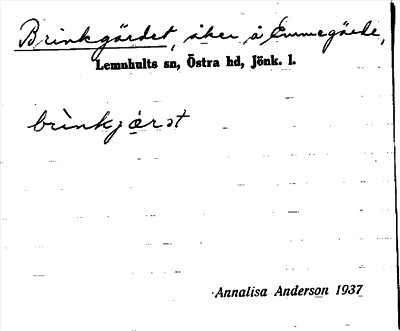 Brinkgärdet, åker å Emmegärde,
Lemnhults sn, Östra hd, Jönk. l.
brìnkjæ̀rət
Annalisa Anderson 1937